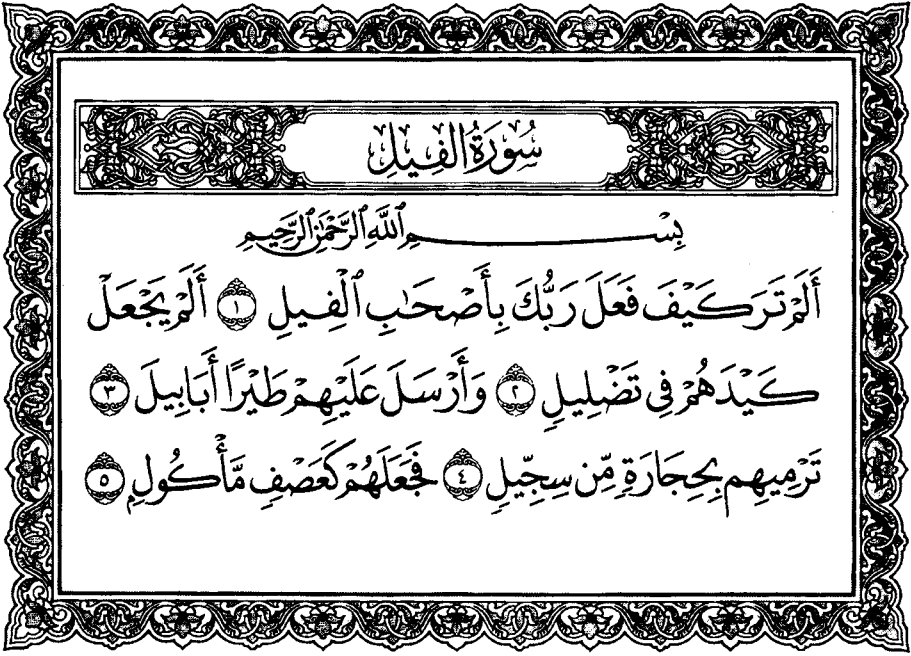 سُورَةُ الفِيلِ
بِسْمِ ٱللَّهِ ٱلرَّحْمَٰنِ ٱلرَّحِيمِ
أَلَمْ تَرَ كَيْفَ فَعَلَ رَبُّكَ بِأَصْحَٰبِ ٱلْفِيلِ ١ أَلَمْ يَجْعَلْ
كَيْدَهُمْ فِى تَضْلِيلٍ ٢ وَأَرْسَلَ عَلَيْهِمْ طَيْرًا أَبَابِيلَ ٣
تَرْمِيهِم بِحِجَارَةٍ مِّن سِجِّيلٍ ٤ فَجَعَلَهُمْ كَعَصْفٍ مَّأْكُولٍ ٥